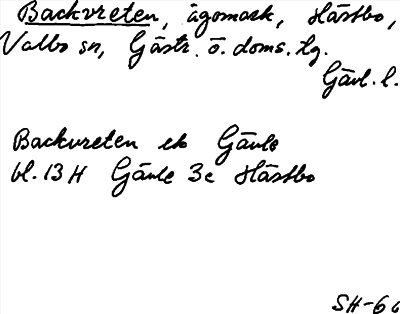 Backvreten, ägomark, Hästbo,
Valbo sn, Gästr. ö. doms. tg.
Gävl. l.
Backvreten ek Gävle
bl. 13 H Gävle 3c Hästbo
SH-66